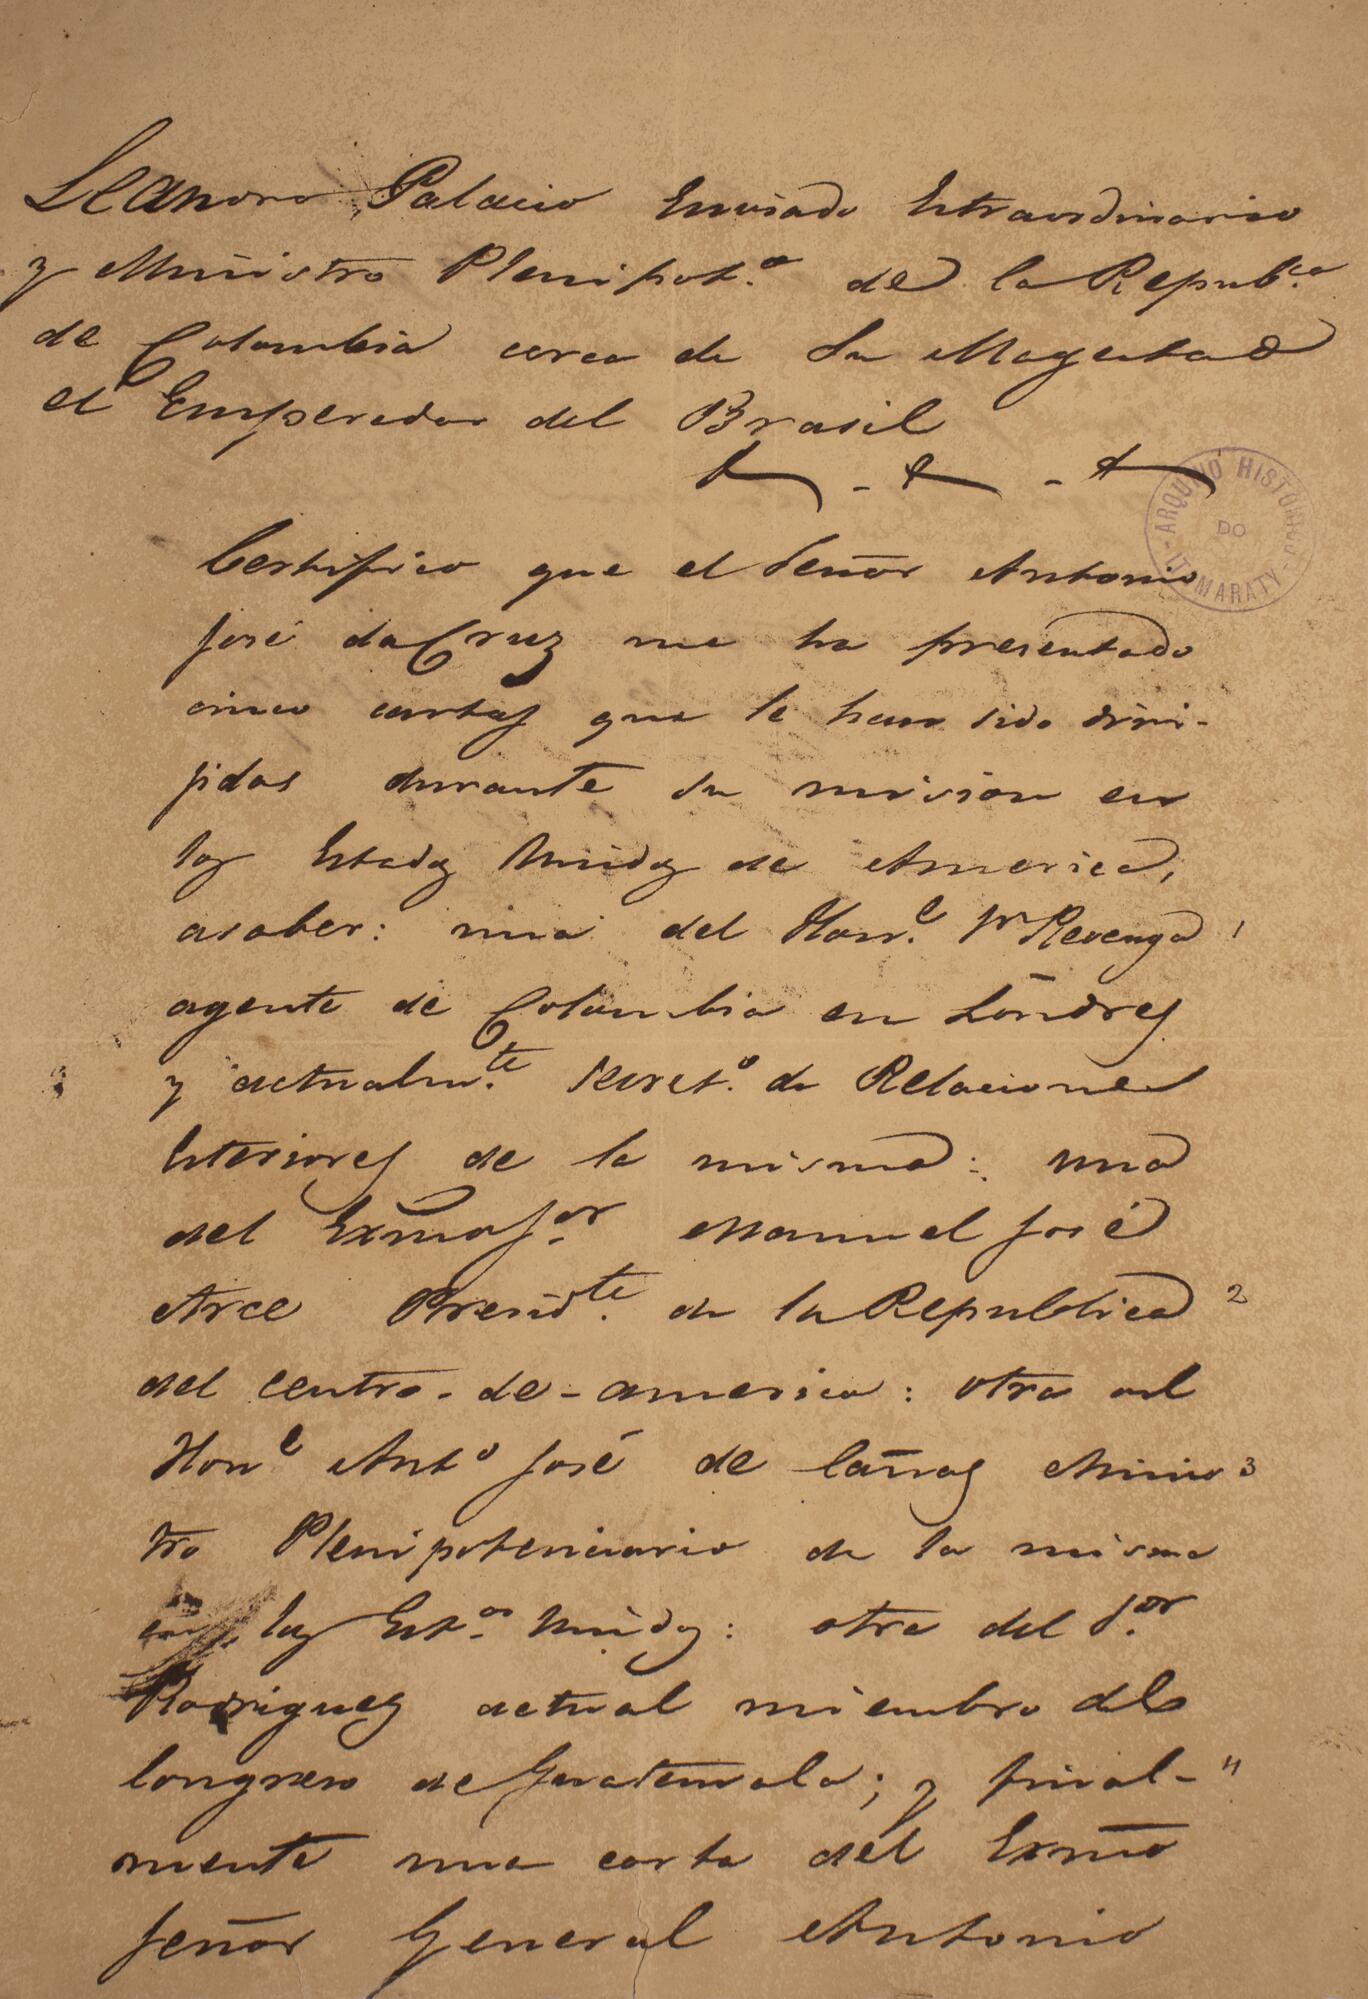 Leandro Palacio Enviado Extraordinario
y Ministro Plenipot.º de la Repub.ca
de Colombia cerca de Su Magestad
el Emperador del Brasil
&. &. &.
Certifico que el Señor Antonio
José da Cruz me ha presentado
cinco cartas que le han sido diri-
jidas durante su mision en
los Estados Unidos de America,
asaber: una del Hon.e Sr Revenga 1
agente de Colombia en Lóndres
y actualm.te Secret.º de Relaciones
Esteriores de la misma: una
del Exmo S.or Manuel José
Arce Presid.te de la Republica 2
del centro-de-america: otra del
Hon.e Ant.o José de Cañas Minis 3
tro Plenipotenciario de la misma
en los Est.os Unidos: otra del S.or
Rodriguez actual miembro del
Congreso de Guatemala; y final- 4
mente una carta del Exmo
Señor General Antonio
ARQUIVO HISTORICO DO ITAMARATY